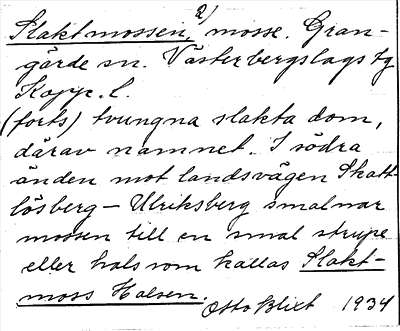 2)
Slaktmossen, mosse. Gran-
gärde sn. Västerbergslags tg
Kopp. l.
(forts) tvungna slakta dom,
därav namnet. I södra
änden mot landsvägen Skatt-
lösberg – Ulriksberg smalnar
mossen till en smal strupe
eller hals som kallas Slakt-
moss Halsen.
Otto Blixt 1934